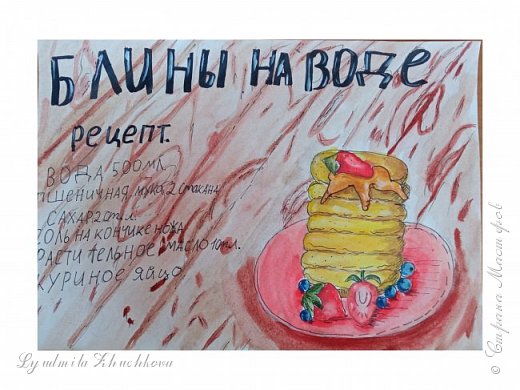 БЛИНЫ НА ВОДЕ
рецепт.
ВОДА 500мл
пшеничная мука 2 стакана
САХАР 2 ст.л.
СОЛЬ НА КОНЧИКЕ НОЖА
РАСТИТЕЛЬНОЕ МАСЛО 10 п.л.
КУРИНОЕ ЯЙЦО.
Lyudmila Zhuchkova
© Страна Мастеров